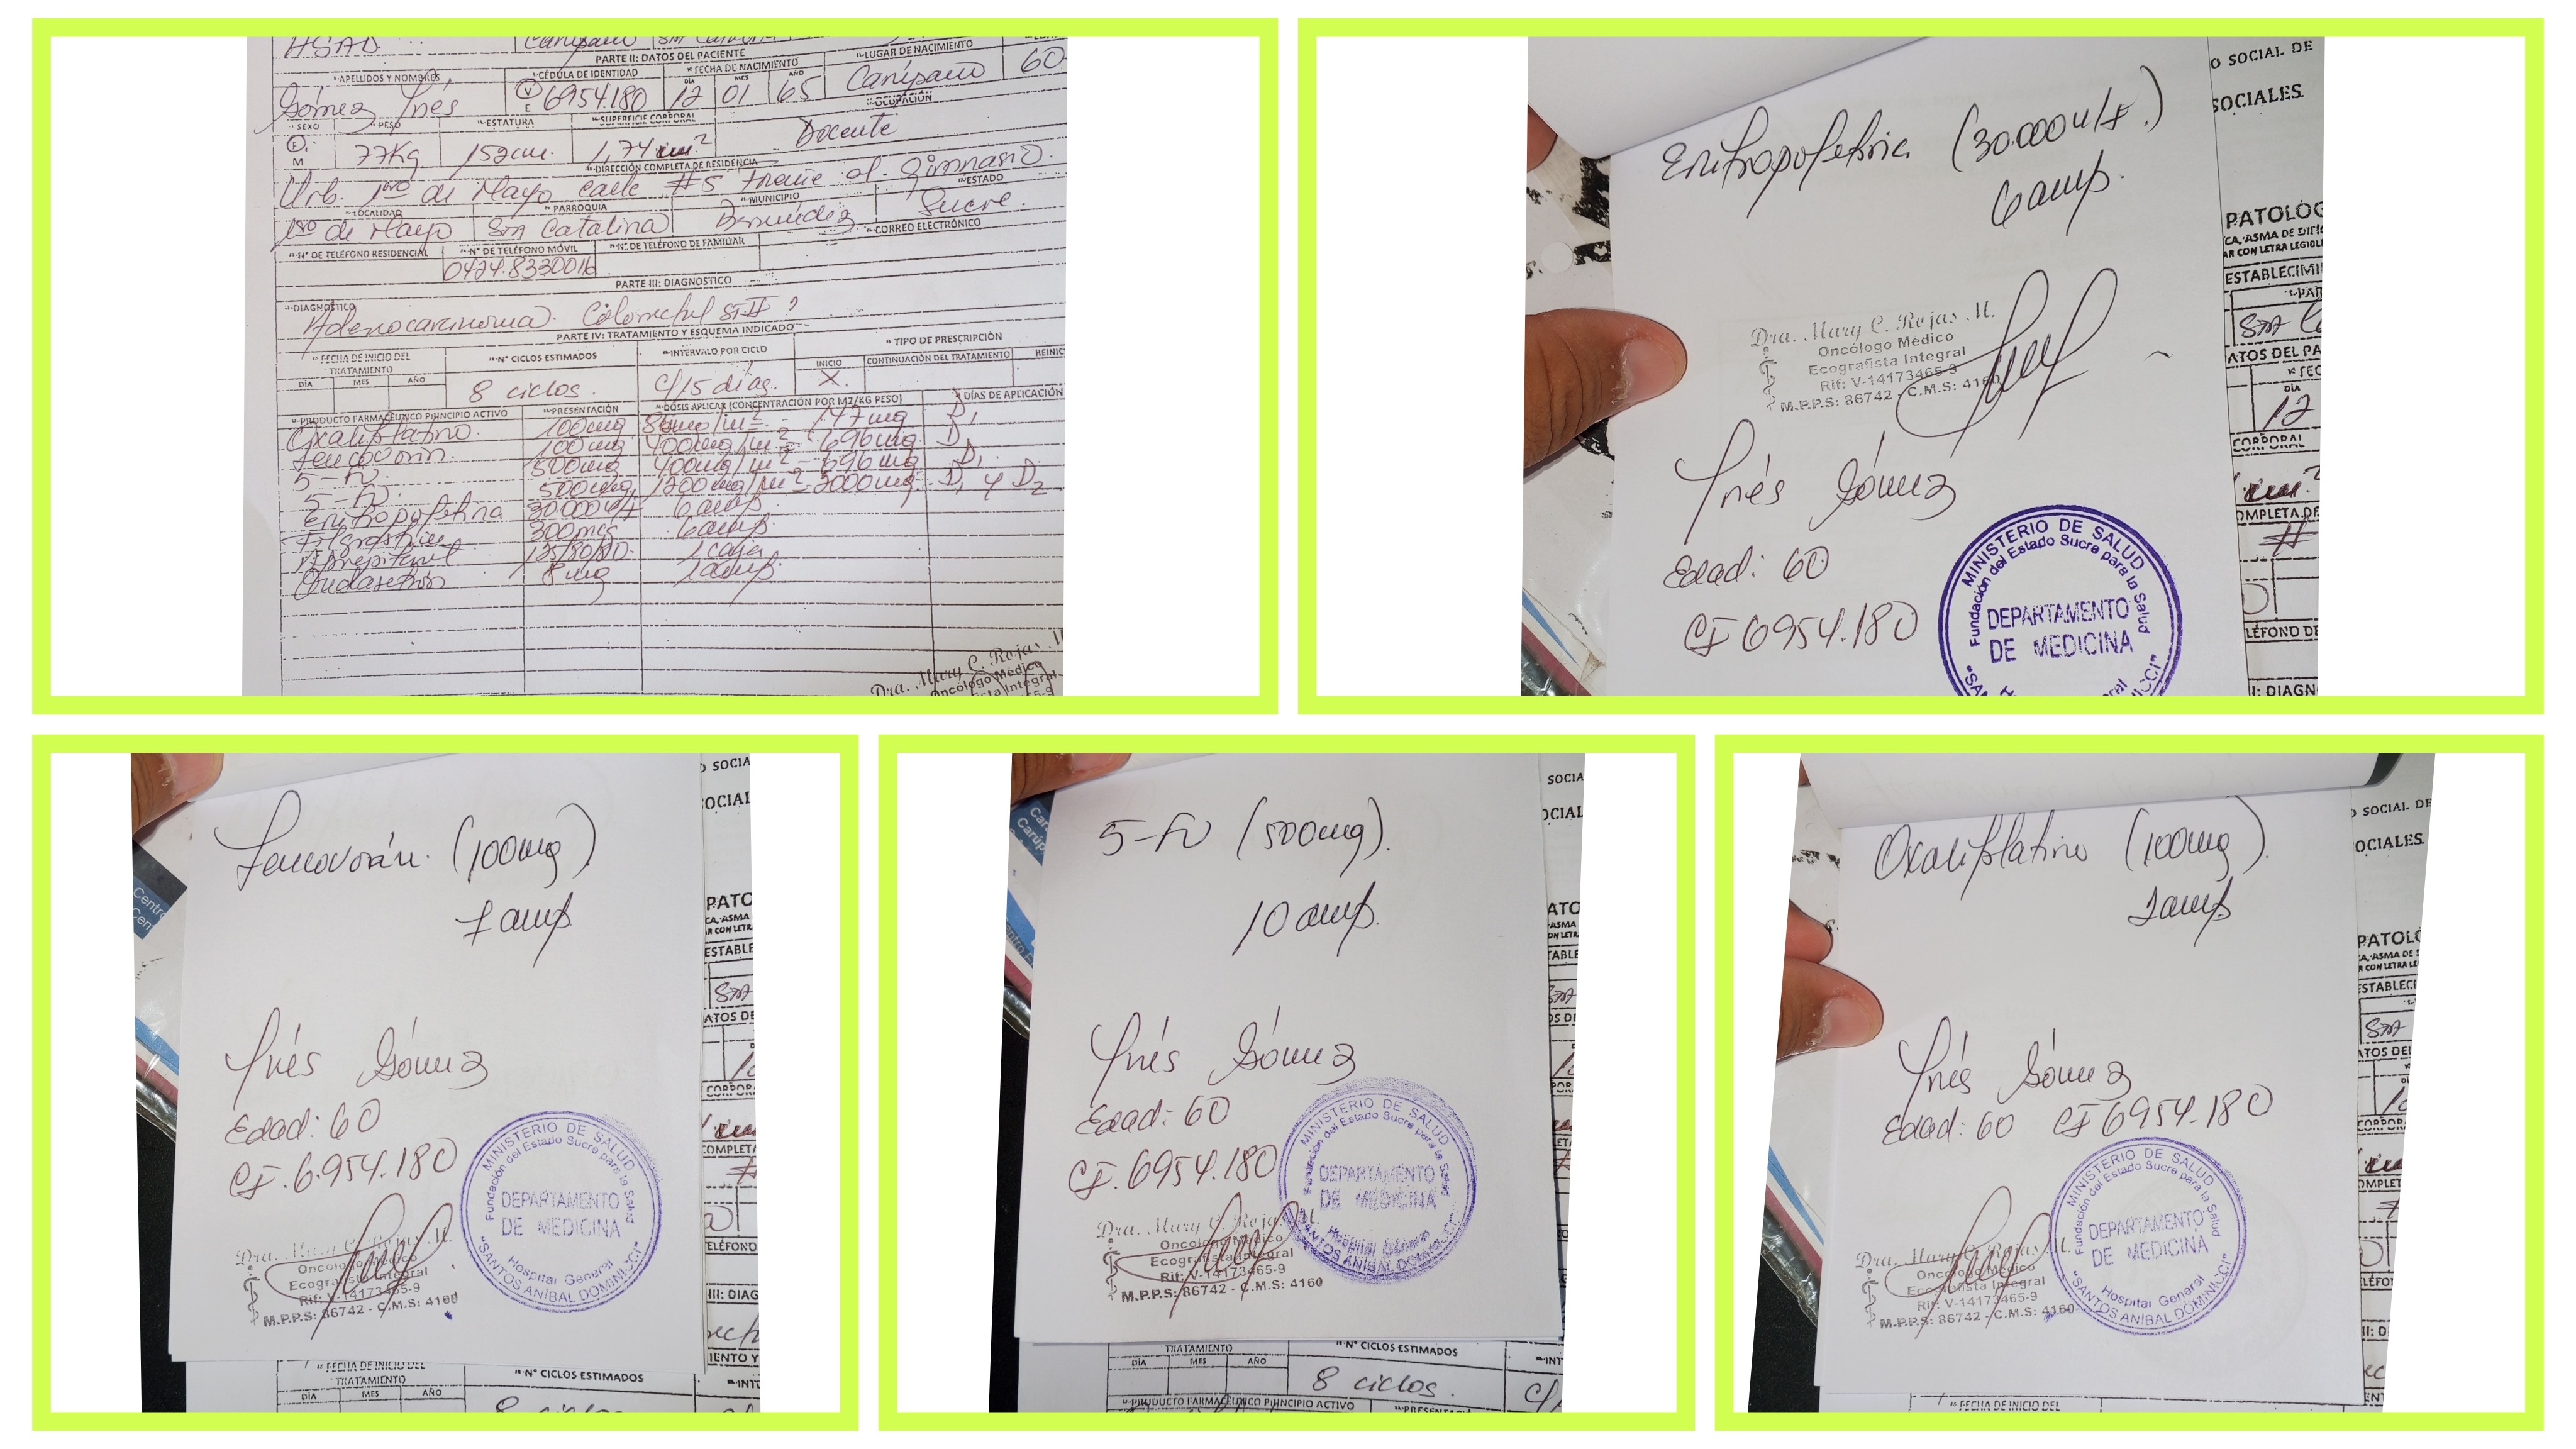 HSAD. Carúpano
PARTE II: DATOS DEL PACIENTE
APELLIDOS Y NOMBRES CÉDULA DE IDENTIDAD FECHA DE NACIMIENTO LUGAR DE NACIMIENTO
DÍA MES AÑO
Gómez Inés V E 6954.180 12 01 65 Carúpano 60
SEXO PESO ESTATURA SUPERFICIE CORPORAL OCUPACIÓN
F M 77Kg 152cm. 1,74 m² Docente
DIRECCIÓN COMPLETA DE RESIDENCIA
Urb. 1ero de Mayo calle #5 frente al gimnasio.
LOCALIDAD PARROQUIA MUNICIPIO ESTADO
1ero de Mayo Sta Catalina Bermúdez Sucre.
N° DE TELÉFONO RESIDENCIAL N° DE TELÉFONO MÓVIL N° DE TELÉFONO DE FAMILIAR CORREO ELECTRÓNICO
0424.8330016
PARTE III: DIAGNOSTICO
DIAGNÓSTICO
Adenocarcinoma Colorectal ST II ?
PARTE IV: TRATAMIENTO Y ESQUEMA INDICADO
FECHA DE INICIO DEL TRATAMIENTO N° CICLOS ESTIMADOS INTERVALO POR CICLO TIPO DE PRESCRIPCIÓN
DÍA MES AÑO INICIO CONTINUACIÓN DEL TRATAMIENTO REINIC
8 ciclos. c/15 días. X.
PRODUCTO FARMACÉUTICO PRINCIPIO ACTIVO PRESENTACIÓN DOSIS APLICAR (CONCENTRACIÓN POR M2/KG PESO) DÍAS DE APLICACIÓN
Oxaliplatino. 100mg 85mg/m² = 147mg D1
Leucovorin. 100mg 400mg/m² = 696mg D1
5-FU. 500mg 400mg/m² = 696mg D1.
5-FU. 500mg 1200mg/m² = 2000mg. D1 y D2
Eritropoyetina 30.000 6amp.
Filgrastim 300mcg 6amp.
Aprepitant 125/80/80. 1 caja
Ondasetrón 8mg 1amp.
Dra. Mary C. Rojas
Oncólogo Médico
Eritropoyetina (30.000 U/I.)
6amp.
Dra. Mary C. Rojas M.
Oncólogo Médico
Ecografista Integral
Rif: V-14173465-9
M.P.P.S: 86742 - C.M.S: 4160
Inés Gómez
Edad: 60
CI 6954.180
MINISTERIO DE SALUD
Fundación del Estado Sucre para la Salud
DEPARTAMENTO
DE MEDICINA
O SOCIAL DE
SOCIALES
PATOLÓG
CA, ASMA DE
ESTABLECIMI
ATOS DEL PA
12
CORPORAL
OMPLETA DE
#
LÉFONO DE
I: DIAGN
Leucovorin. (100mg)
7 amp
Inés Gómez
Edad: 60
CI. 6.954.180
Dra. Mary C. Rojas M.
Oncólogo Médico
Ecografista Integral
Rif: V-14173465-9
M.P.P.S: 86742 - C.M.S: 4160
MINISTERIO DE SALUD
Fundación del Estado Sucre para la Salud
DEPARTAMENTO
DE MEDICINA
Hospital General
"SANTOS ANÍBAL DOMINICCI"
FECHA DE INICIO DEL
TRATAMIENTO
DÍA MES AÑO
N° CICLOS ESTIMADOS
5-FU (500mg).
10 amp.
Inés Gómez
Edad: 60
CI. 6954.180
Dra. Mary C. Rojas M.
Oncólogo Médico
Ecografista Integral
Rif: V-14173465-9
M.P.P.S: 86742 - C.M.S: 4160
MINISTERIO DE SALUD
Fundación del Estado Sucre para la Salud
DEPARTAMENTO
DE MEDICINA
Hospital General
"SANTOS ANÍBAL DOMINICCI"
TRATAMIENTO
DÍA MES AÑO
N° CICLOS ESTIMADOS
8 ciclos.
PRODUCTO FARMACÉUTICO PRINCIPIO ACTIVO
Oxaliplatino (100mg).
2amp
Inés Gómez
Edad: 60 CI 6954.180
Dra. Mary C. Rojas M.
Oncólogo Médico
Ecografista Integral
Rif: V-14173465-9
M.P.P.S: 86742 - C.M.S: 4160
MINISTERIO DE SALUD
Fundación del Estado Sucre para la Salud
DEPARTAMENTO
DE MEDICINA
Hospital General
"SANTOS ANÍBAL DOMINICCI"
FECHA DE INICIO DEL